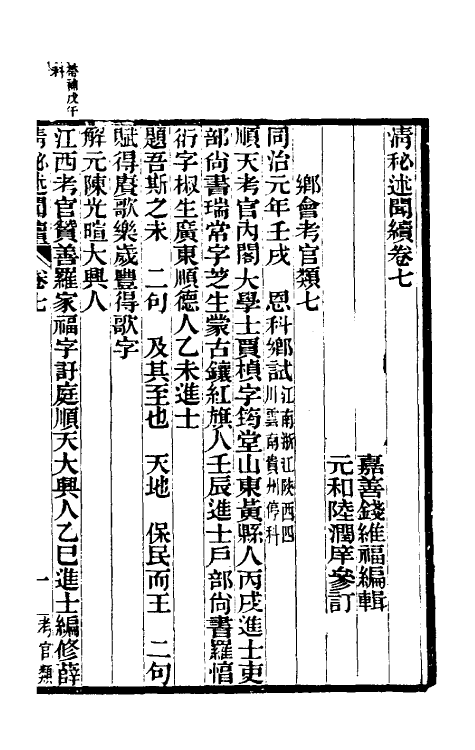 清秘述聞續卷七
嘉善錢維福編輯
元和陸潤庠參訂
鄉會考官類七
同治元年壬戌 恩科鄉試江南浙江陝西四川雲南貴州停科
順天考官內閣大學士賈楨字筠堂山東黃縣人丙戌進士吏
部尚書瑞常字芝生蒙古鑲紅旗人壬辰進士戶部尚書羅惇
衍字椒生廣東順德人乙未進士
題吾斯之未 二句 及其至也 天地 保民而王 二句
賦得賡歌樂歲豐得歌字
解元陳光暄大興人
江西考官贊善羅家福字訏庭順天大興人乙巳進士編修薛
清秘述聞續 卷七 一 考官類
帶補戊午科